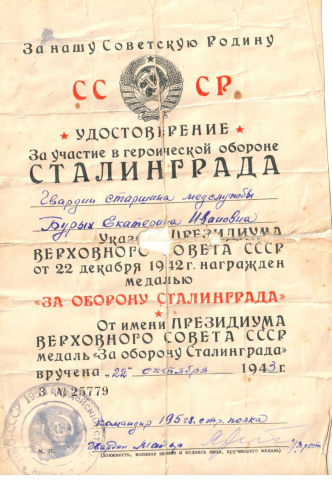 За нашу Советскую Родину
СС СР
УДОСТОВЕРЕНИЕ
За участие в героической обороне
СТАЛИНГРАДА
Гвардии старшина медслужбы
Бурых Екатерина Ивановна
Указом ПРЕЗИДИУМА
ВЕРХОВНОГО СОВЕТА СССР
от 22 декабря 1942 г. награжден
медалью
«ЗА ОБОРОНУ СТАЛИНГРАДА»
От имени ПРЕЗИДИУМА
ВЕРХОВНОГО СОВЕТА СССР
медаль «За оборону Сталинграда»
вручена „22" октября 1943 г.
З № 25779
Командир 195 гв. стр. полка
М. П. Гвардии Майор
(Должность, военное звание и подпись лица, вручившего медаль)